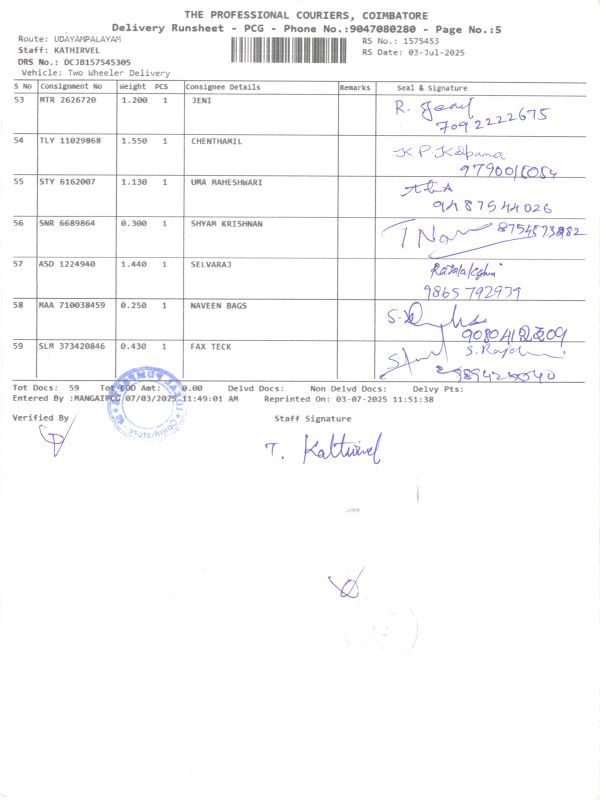 THE PROFESSIONAL COURIERS, COIMBATORE
Delivery Runsheet - PCG - Phone No.:9047080280 - Page No.:5
Route: UDAYAMPALAYAM RS No.: 1575453
Staff: KATHIRVEL RS Date: 03-Jul-2025
DRS No.: DCJB157545305
Vehicle: Two Wheeler Delivery
S No Consignment No Weight PCS Consignee Details Remarks Seal & Signature
53 MTR 2626720 1.200 1 JENI R. Jenif
7092222675
54 TLY 11029868 1.550 1 CHENTHAMIL K P Kalpana
55 STY 6162007 1.130 1 UMA MAHESHWARI
9487544026
56 SNR 6689864 0.300 1 SHYAM KRISHNAN
57 ASD 1224940 1.440 1 SELVARAJ
9865792939
58 MAA 710038459 0.250 1 NAVEEN BAGS
59 SLM 373420846 0.430 1 FAX TECK
Tot Docs: 59 Tot COD Amt: 0.00 Delvd Docs: Non Delvd Docs: Delvy Pts:
Entered By :MANGAIPCG/07/03/2025 11:49:01 AM Reprinted On: 03-07-2025 11:51:38
Verified By Staff Signature
T. Kathirvel